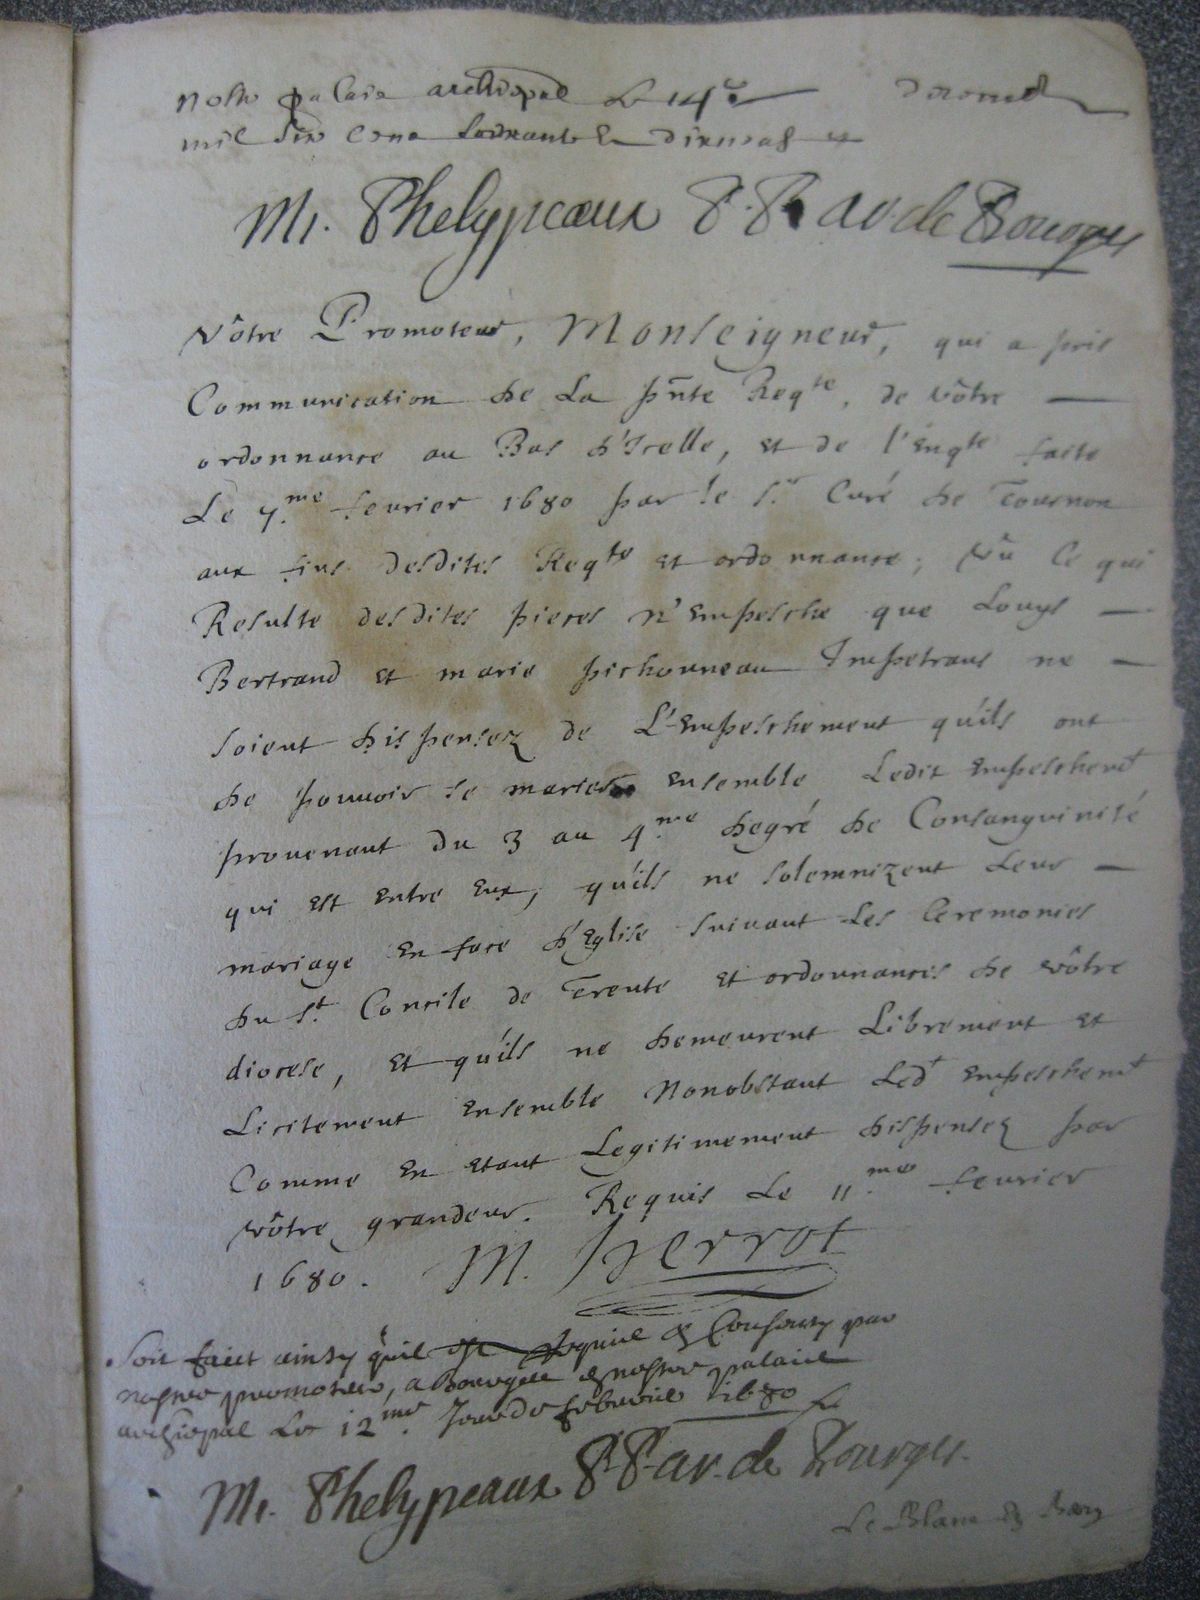 palais archiepal Le 14e
mil six cens soixante & dixneuf
Mi. Phelypeaux P. P. ar. de Bourges
Vôtre Promoteur, Monseigneur, qui a pris
Communication de La pñte Reqte, de vôtre
ordonnance au Bas d'Icelle, et de l'Enqte faite
Le 7.me feurier 1680 par le Sr Curé de Tournon
aux fins desdites Reqte et ordonnance; vû Ce qui
Resulte desdites pieces n'Empesche que Louys
Bertrand et marie pichonneau Impetrans ne
soient dispensez de L'Empeschement qu'ils ont
de pouuoir se marier ensemble Ledit Empeschemt
prouenant du 3 au 4me degré de Consanguinité
qui est entre Eux, qu'ils ne solemnizent Leur
mariage en face d'Eglise suiuant Les Ceremonies
du St. Concile de Trente et ordonnances de vôtre
diocese, et qu'ils ne demeurent Librement et
Licitement ensemble Nonobstant Ledt Empeschemt
Comme en etant Legitimement dispensez par
vôtre grandeur. Requis Le 11.me feurier
1680. M. Perrot
Soit faict ainsy qu'il est requis & Consenty par
nostre promoteur, a Bourges & nostre palais
archiepal Le 12me Jour de febvrier 1680
Mi. Phelypeaux P. P. ar. de Bourges.
Le Blanc